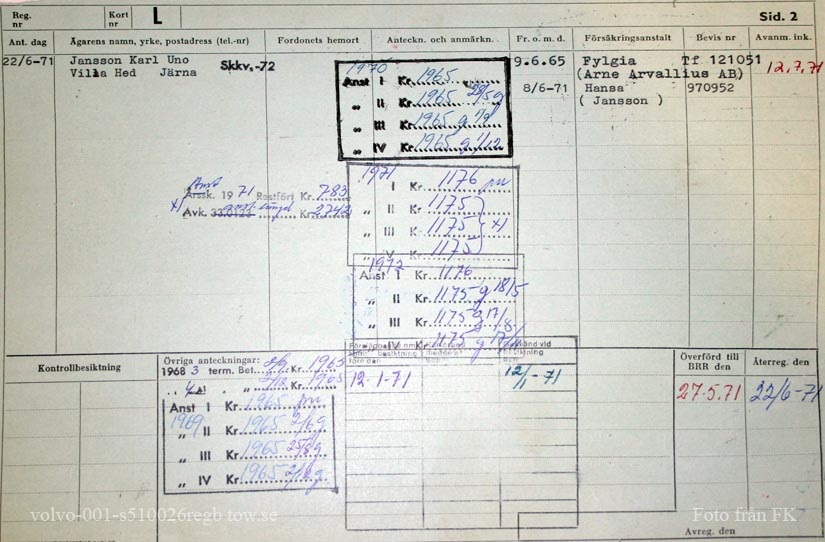 Reg. nr
Kort nr
L
Sid. 2
Ant. dag
Ägarens namn, yrke, postadress (tel.-nr)
Fordonets hemort
Anteckn. och anmärkn.
Fr. o. m. d.
Försäkringsanstalt
Bevis nr
Avanm. ink.
22/6-71 Jansson Karl Uno Skkv.-72
Villa Hed Järna
9.6.65 Fylgia Tf 121051
(Arne Arvallius AB) 12,7,71
8/6-71 Hansa 970952
( Jansson )
1970
Anst I Kr 1965
„ II Kr. 1965
„ III Kr. 1965 g 7/9
„ IV Kr. 1965 g 1/12
1971
I Kr. 1176
„ II K 1175
„ III K 1175 x)
„ IV K 1175
Årssk. 19 71 Restfört Kr. 783
x) Avk. 33.0123 Kr 2742
1972
Anst I Kr. 1176
„ II Kr. 1175 g 18/5
„ III Kr. 1175 g 17/8
„ IV Kr. 1175 g
Kontrollbesiktning
Övriga anteckningar:
1968 3 term. Bet. 1965
1965
Anst I Kr. 1965
1969 „ II Kr. 1965 2/6 g
„ III Kr. 1965 25/8 g
„ IV Kr 1965
12-1-71
12/1-71
Överförd till BRR den
Återreg. den
27.5.71
22/6-71
Avreg. den
volvo-001-s510026regb tow.se
Foto från FK